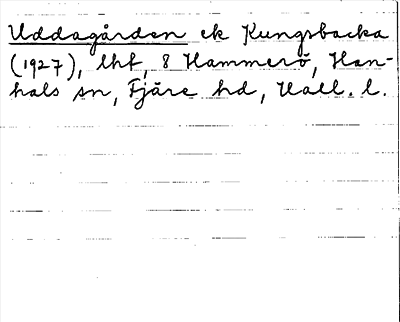 Uddagården ek Kungsbacka
(1927), lht, 8 Hammerö, Han-
hals sn, Fjäre hd, Hall. l.